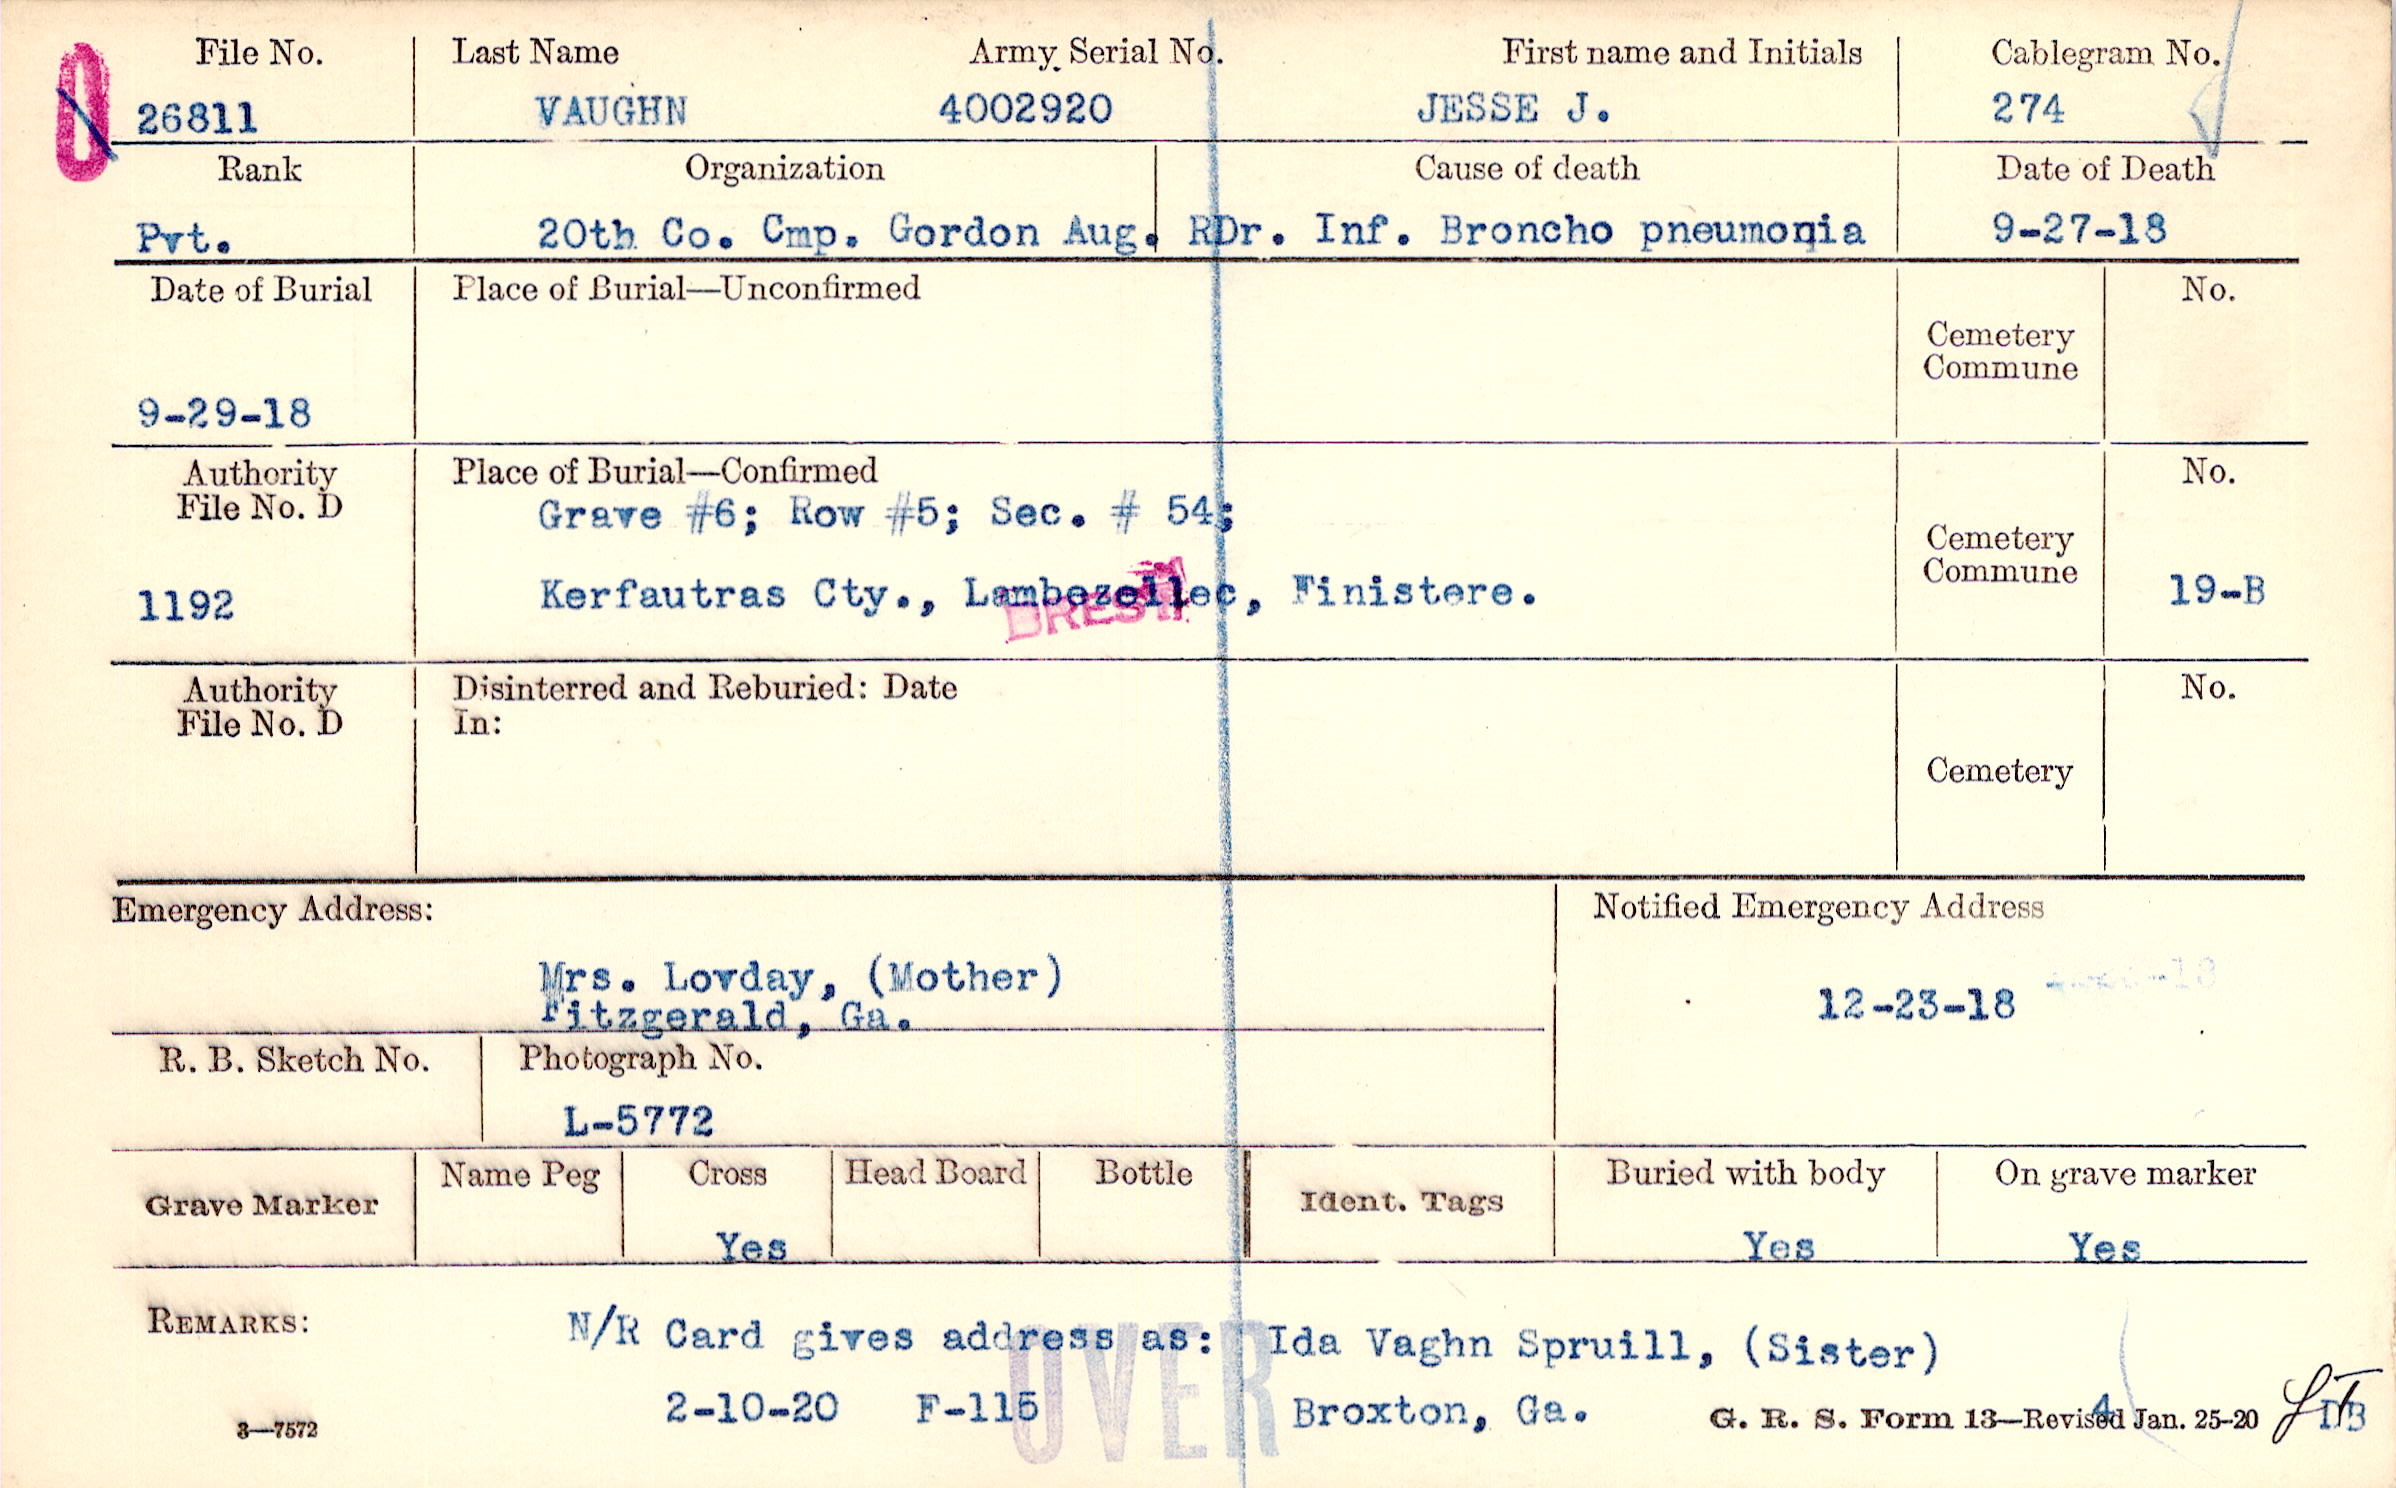 File No. Last Name Army Serial No. First name and Initials Cablegram No.
26811 VAUGHN 4002920 JESSE J. 274
Rank Organization Cause of death Date of Death
Pvt. 20th Co. Cmp. Gordon Aug. RDr. Inf. Broncho pneumonia 9-27-18
Date of Burial Place of Burial—Unconfirmed No.
Cemetery
Commune
9-29-18
Authority Place of Burial—Confirmed No.
File No. D
Grave #6; Row #5; Sec. # 54;
Cemetery
Commune
1192 Kerfautras Cty., Lambezellec, Finistere. 19-B
BREST
Authority Disinterred and Reburied: Date No.
File No. D In:
Cemetery
Emergency Address: Notified Emergency Address
Mrs. Lovday, (Mother)
Fitzgerald, Ga. 12-23-18
R. B. Sketch No. Photograph No.
L-5772
Grave Marker Name Peg Cross Head Board Bottle Ident. Tags Buried with body On grave marker
Yes Yes Yes
REMARKS: N/R Card gives address as: Ida Vaghn Spruill, (Sister)
2-10-20 F-115 Broxton, Ga.
OVER
3—7572 G. R. S. Form 13—Revised Jan. 25-20
4 DB